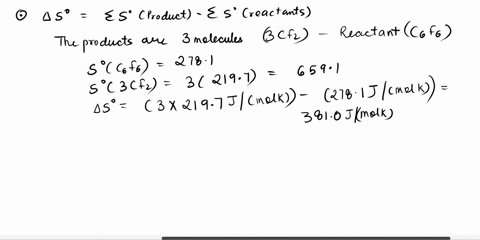 ⊙ ΔS° = ΣS°(Product) - ΣS°(reactants)
The products are 3 molecules (3Cf2) - Reactant (C6f6)
S°(C6f6) = 278.1
S°(3Cf2) = 3(219.7) = 659.1
ΔS° = (3 × 219.7 J/(molk)) - (278.1 J/(molk)) =
381.0 J/(molk)